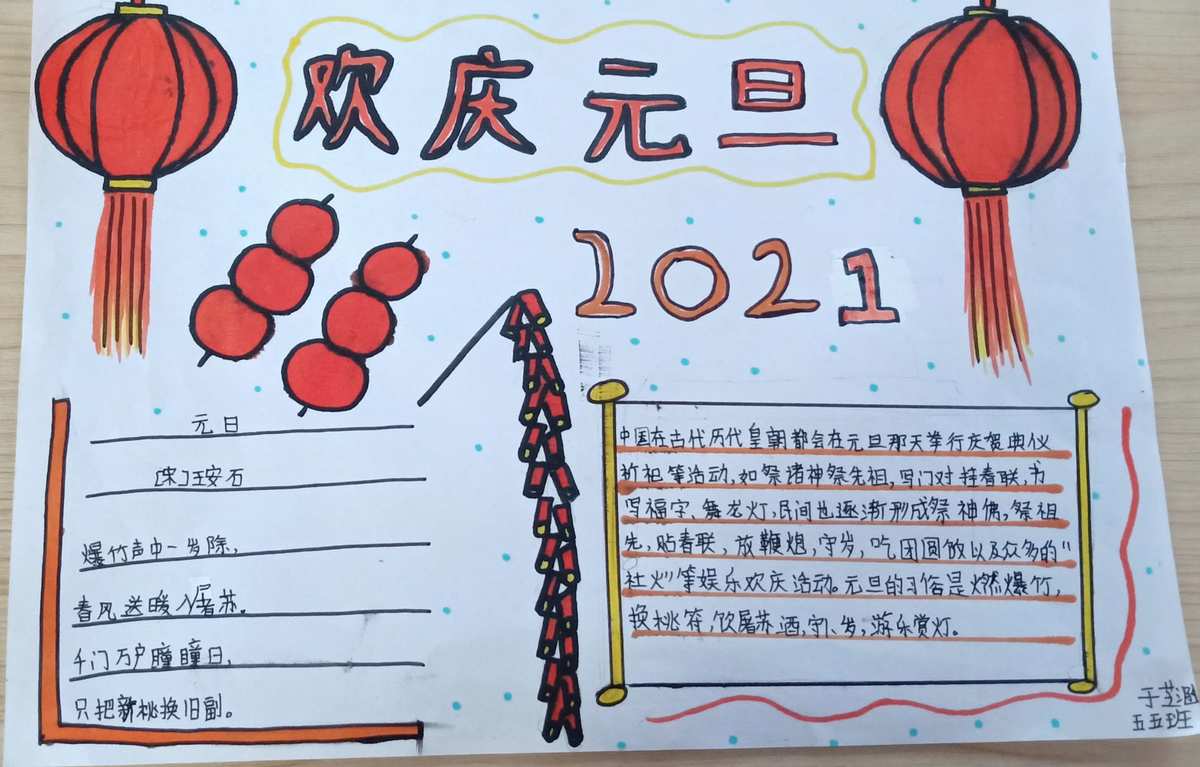 欢庆元旦
2021
元日
[宋]王安石
爆竹声中一岁除，
春风送暖入屠苏。
千门万户瞳瞳日，
只把新桃换旧副。
中国在古代历代皇朝都会在元旦那天举行庆贺典仪
祈祖等活动，如祭诸神祭先祖，写门对挂春联，书
写福字、舞龙灯，民间也逐渐形成祭神佛，祭祖
先，贴春联，放鞭炮，守岁，吃团圆饭以及众多的"
社火"等娱乐欢庆活动。元旦的习俗是燃爆竹，
换桃符，饮屠苏酒，守、岁，游乐赏灯。
于芷涵
五五班